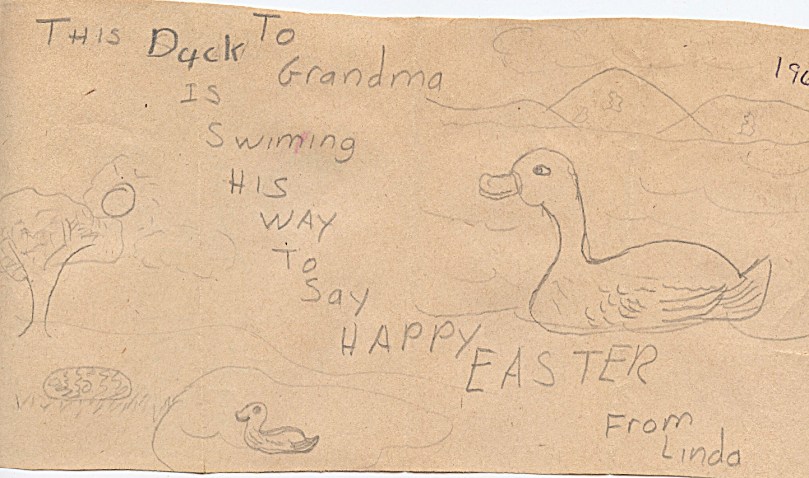 THIS Duck To
Grandma
IS
Swiming
HIS
WAY
To
Say
HAPPY
EASTER
From
Linda